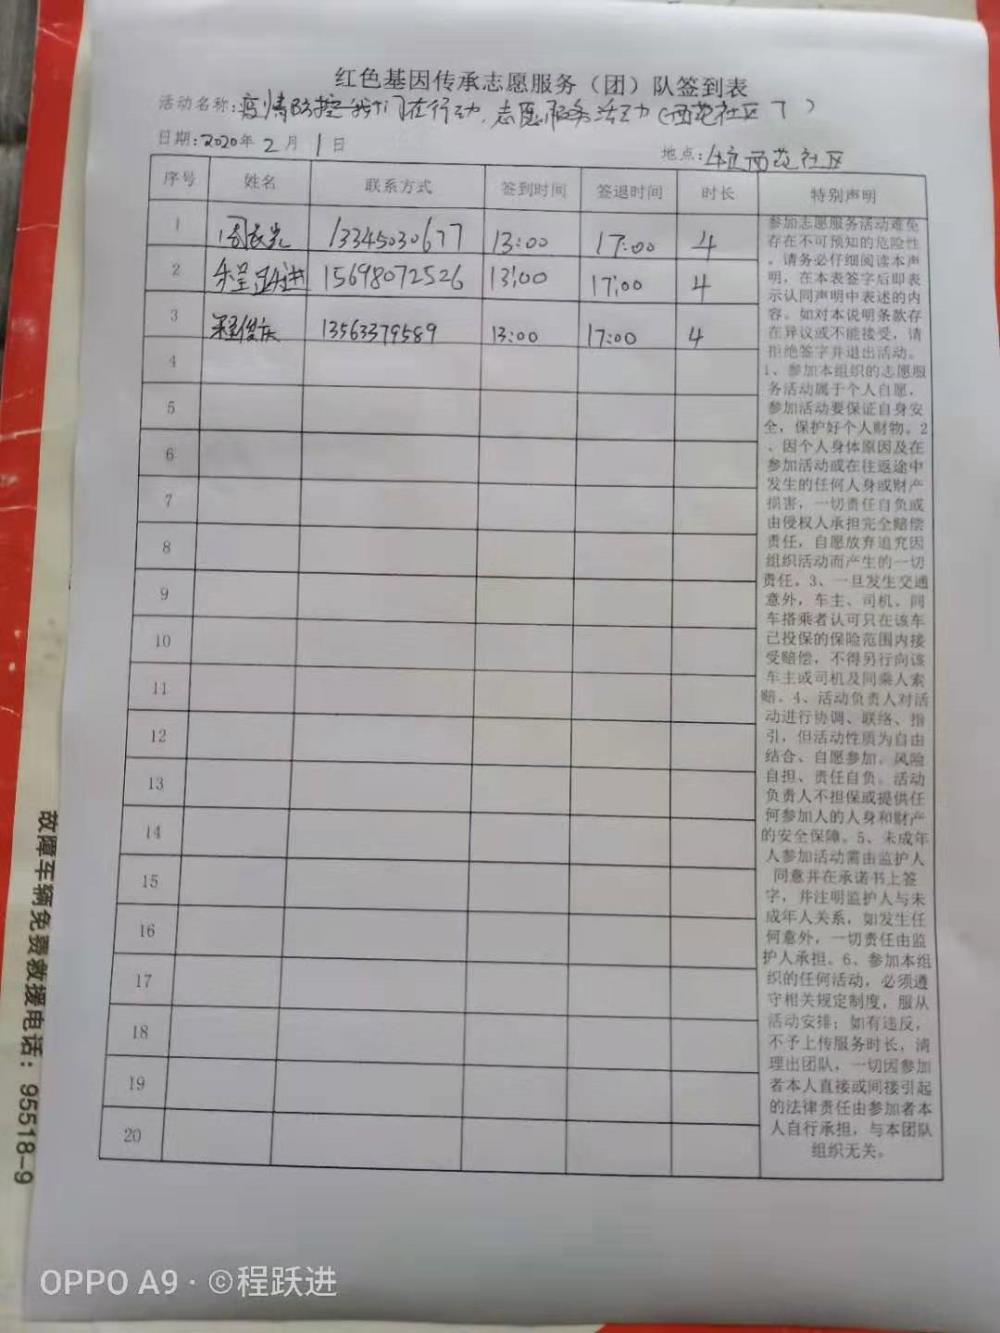 红色基因传承志愿服务（团）队签到表
活动名称:疫情防控我们在行动,志愿服务活动(西苑社区7)
日期:2020年2月1日 地点:西苑社区
序号 姓名 联系方式 签到时间 签退时间 时长 特别声明
1 13345030677 13:00 17:00 4
2 程跃进 15698072526 13:00 17:00 4
3 程俊庆 13563379589 13:00 17:00 4
4
5
6
7
8
9
10
11
12
13
14
15
16
17
18
19
20
参加志愿服务活动难免
存在不可预知的危险性
。请务必仔细阅读本声
明，在本表签字后即表
示认同声明中表述的内
容。如对本说明条款存
在异议或不能接受，请
拒绝签字并退出活动。
1、参加本组织的志愿服
务活动属于个人自愿，
参加活动要保证自身安
全，保护好个人财物。2
、因个人身体原因及在
参加活动或在往返途中
发生的任何人身或财产
损害，一切责任自负或
由侵权人承担完全赔偿
责任，自愿放弃追究因
组织活动而产生的一切
责任。3、一旦发生交通
意外，车主、司机、同
车搭乘者认可只在该车
已投保的保险范围内接
受赔偿，不得另行向该
车主或司机及同乘人索
赔。4、活动负责人对活
动进行协调、联络、指
引，但活动性质为自由
结合、自愿参加，风险
自担、责任自负。活动
负责人不担保或提供任
何参加人的人身和财产
的安全保障。5、未成年
人参加活动需由监护人
同意并在承诺书上签
字，并注明监护人与未
成年人关系，如发生任
何意外，一切责任由监
护人承担。6、参加本组
织的任何活动，必须遵
守相关规定制度，服从
活动安排；如有违反，
不予上传服务时长，清
理出团队，一切因参加
者本人直接或间接引起
的法律责任由参加者本
人自行承担，与本团队
组织无关。
故障车辆免费救援电话：95518-9
OPPO A9 · ©程跃进